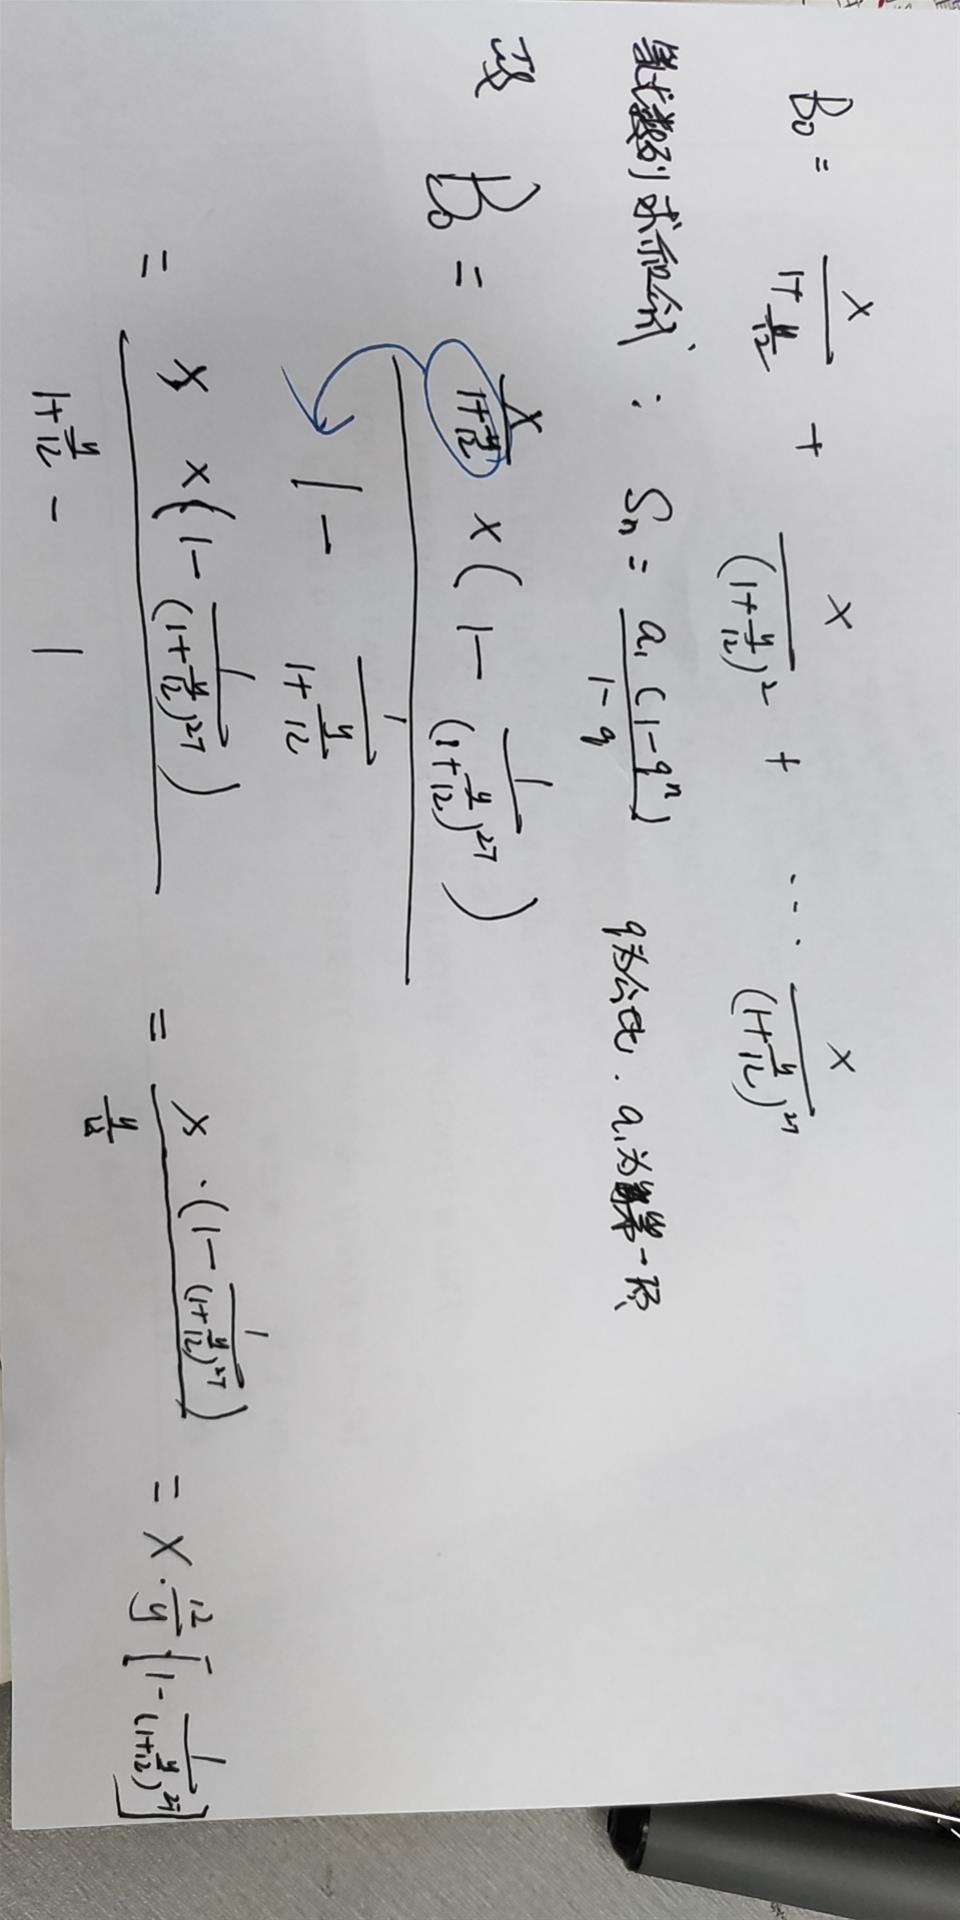 B₀ = X/(1+y/12) + X/(1+y/12)² + ... X/(1+y/12)²⁷
等比数列求和公式: Sₙ = a₁(1-qⁿ)/(1-q) q为公比. a₁为第一项
B₀ = X/(1+y/12) × (1 - 1/(1+y/12)²⁷) / (1 - 1/(1+y/12))
= X × (1 - 1/(1+y/12)²⁷) / (1+y/12 - 1) = X · (1 - 1/(1+y/12)²⁷) / (y/12) = X · 12/y [1 - 1/(1+y/12)²⁷]